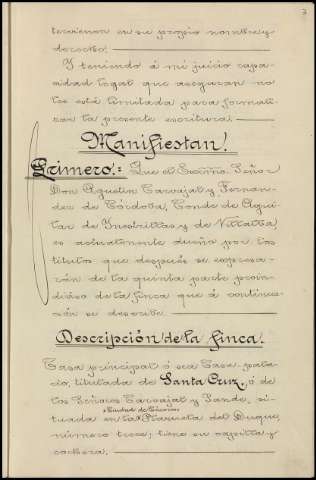 3
tervienen en su propio nombre y
derecho.
Y teniendo á mi juicio capa-
cidad legal que aseguran no
les está limitada para formali-
zar la presente escritura.
Manifiestan:
Primero:= Que el Excmo. Señor
Don Agustín Carvajal y Fernan-
dez de Córdoba, Conde de Agui-
lar de Inestrillas y de Villalba
es actualmente dueño por los
títulos que después se expresa-
rán de la quinta parte proin-
diviso de la finca que á continua-
ción se describe.
Descripción de la finca:
Casa principal ó sea Casa-pala-
cio, titulada de Santa Cruz, ó de
los Señores Carvajal y Sande, si-
ciudad de Cáceres
tuada en la Plazuela del Duque,
número trece; tiene su capilla y
cochera.